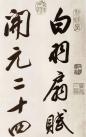 白羽扇賦
開元二十四